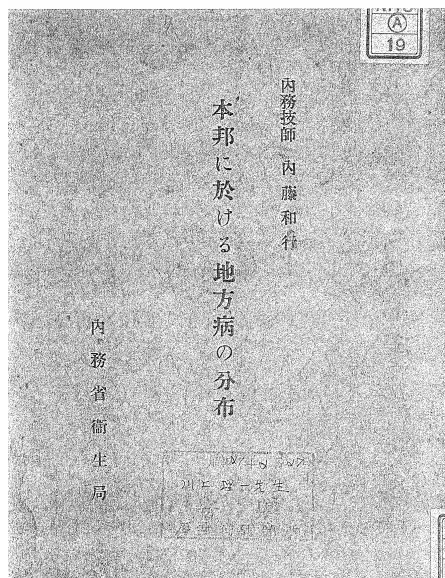 A
19
内務技師 内藤和行
本邦に於ける地方病の分布
内務省衞生局
先生